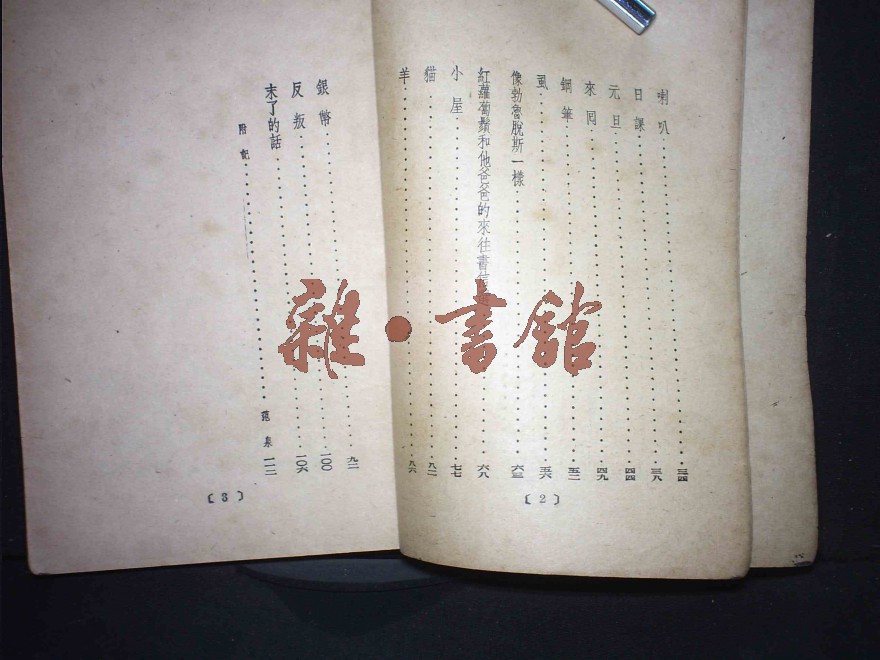 喇叭……三四
日課……三八
元旦……四四
來囘……四九
鋼筆……五二
虱……五六
像勃魯脫斯一樣……六三
紅蘿蔔鬚和他爸爸的來往書信……六八
小屋……七七
貓……八二
羊……八六
〔2〕
銀幣……九二
反叛……一〇〇
末了的話……一〇六
附記……范泉 一一二
〔3〕
雜·書館